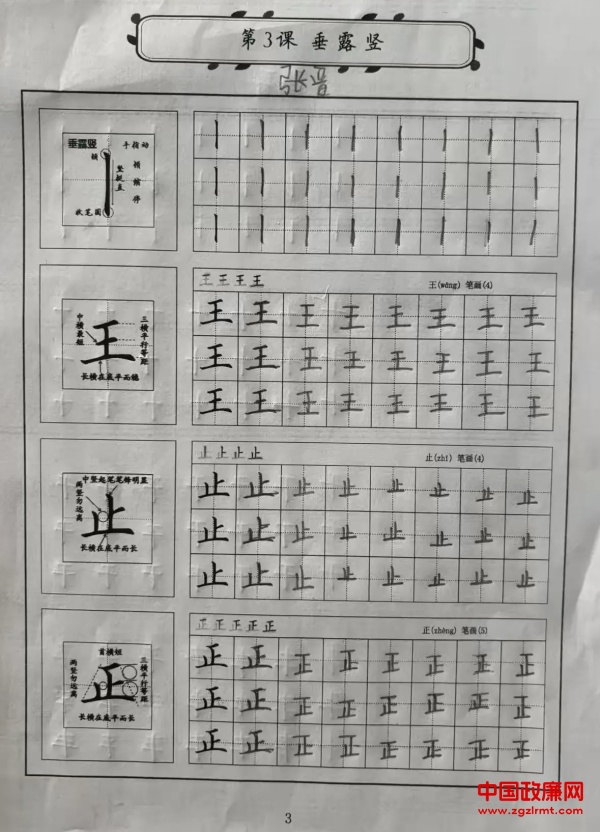 第3课 垂露竖
垂露竖
千斤动
顿
竖挺直
稍停
收笔圆
王 王 王 王
王(wáng) 笔画(4)
中横最短
三横平行等距
王
长横在底平而稳
王 王 王 王 王 王 王 王
王 王 王 王 王 王 王 王
王 王 王 王 王 王 王 王
止 止 止 止
止(zhǐ) 笔画(4)
中竖起笔笔锋明显
两竖匀远离
止
长横在底平而长
止 止 止 止 止 止 止 止
止 止 止 止 止 止 止 止
止 止 止 止 止 止 止 止
正 正 正 正 正
正(zhèng) 笔画(5)
首横短
两竖匀远离
三横平行等距
正
长横在底平而长
正 正 正 正 正 正 正 正
正 正 正 正 正 正 正 正
正 正 正 正 正 正 正 正
3
中国政廉网
www.zgzlrmt.com